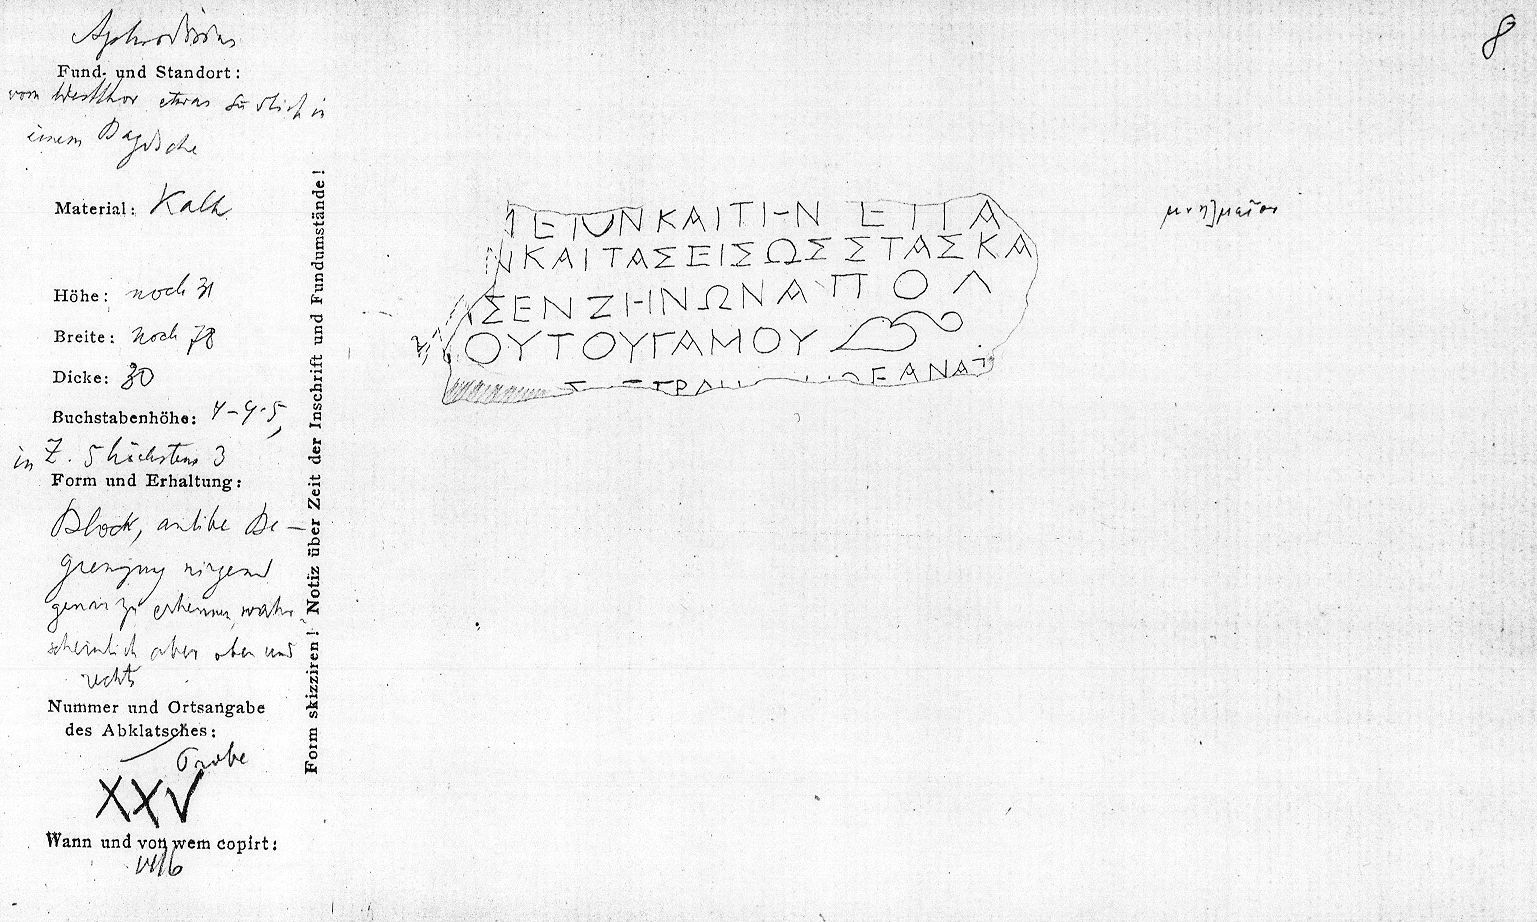 Aphrodisias
8
Fund- und Standort:
vom Westthor etwas südlich in
einem
Material: Kalk
Höhe: noch 31
Breite: noch 78
Dicke: 30
Buchstabenhöhe: 4–4·5,
in Z. 5 höchstens 3
Form und Erhaltung:
Block, antike Be-
grenzung nirgend
genau zu erkennen, wahr-
scheinlich aber oben und
rechts
Nummer und Ortsangabe
des Abklatsches:
Grabe
XXV
Wann und von wem copirt:
Form skizziren! Notiz über Zeit der Inschrift und Fundumstände!
ΕΙΟΝΚΑΙΤΗΝ ΕΠΑ
ΝΚΑΙΤΑΣΕΙΣΩΣΣΤΑΣΚΑ
ΣΕΝΖΗΝΩΝΑΠΟΛ
ΟΥΤΟΥΓΑΜΟΥ
ΤΡΑ ΕΑΝΑΤ
μνημεῖον